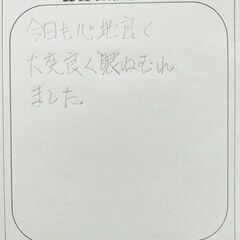 今日も心地良く
大変良く眠ねむれ
ました。